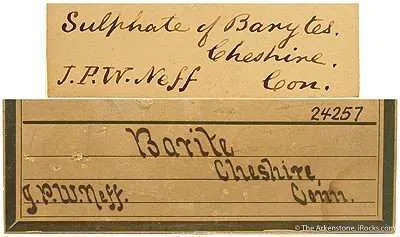 Sulphate of Barytes.
Cheshire.
J.P.W. Neff Con.
24257
Barite
Cheshire,
J.P.W. Neff. Conn.
© The Arkenstone, iRocks.com